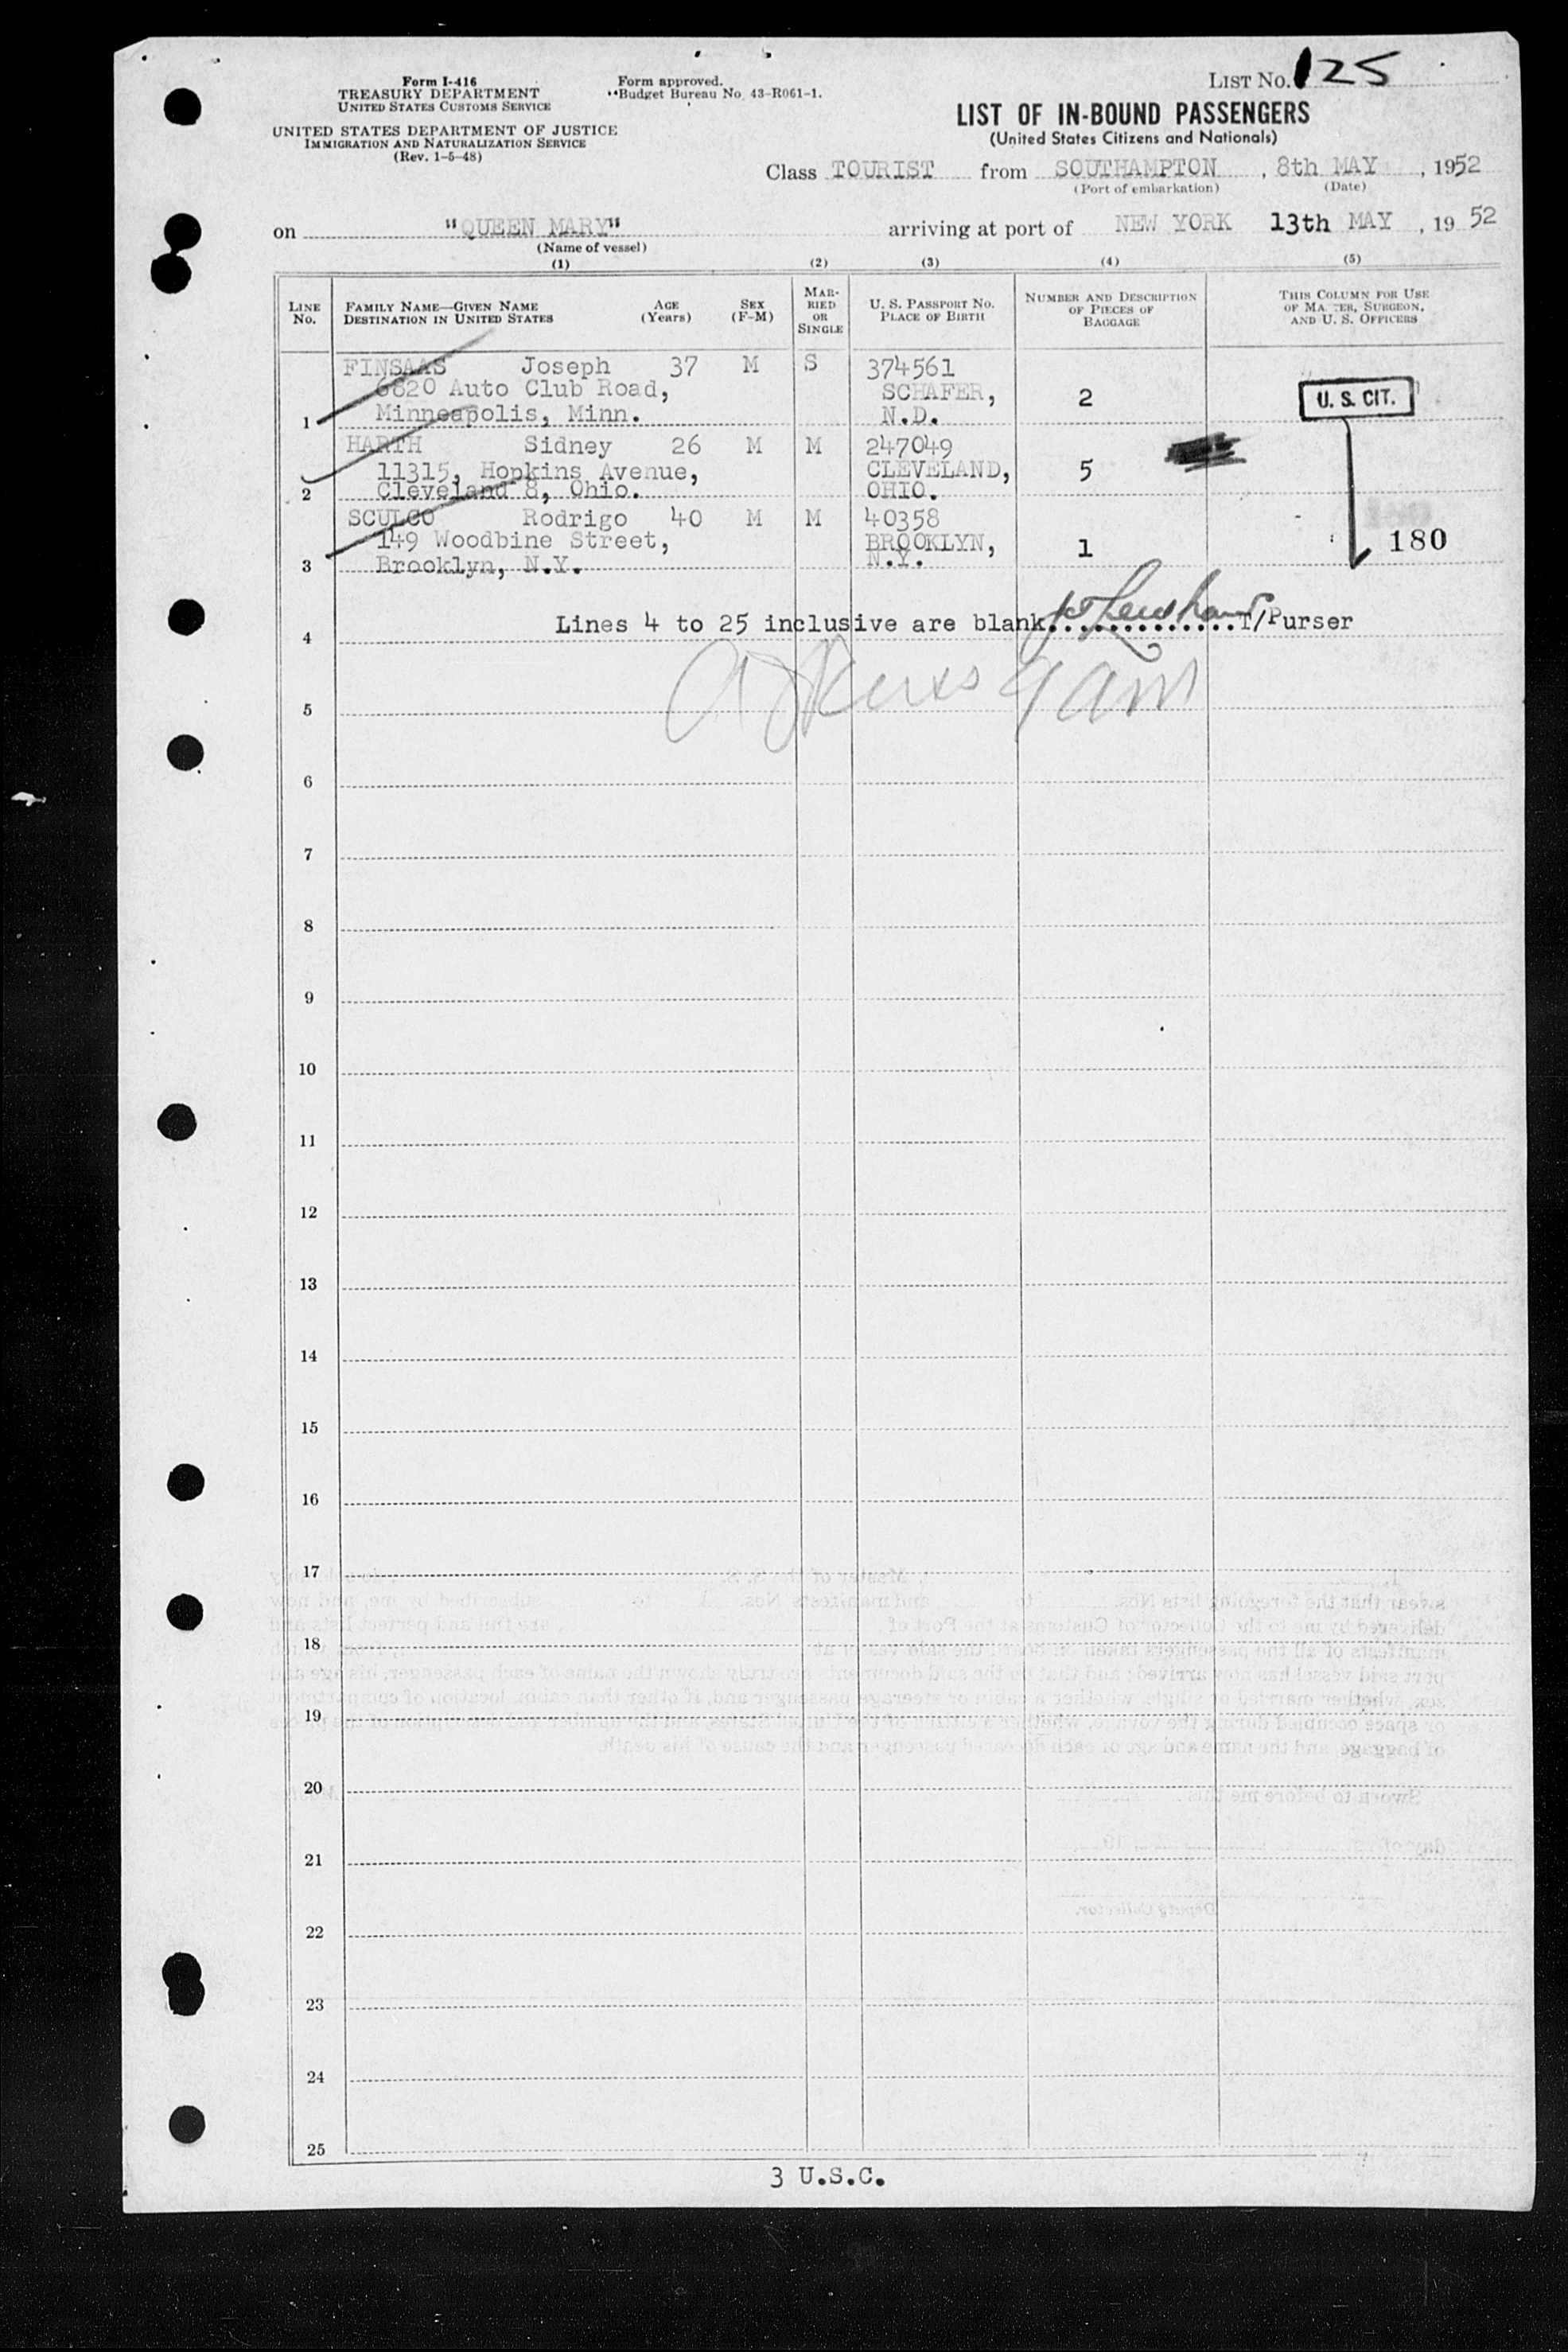 Form I-416
TREASURY DEPARTMENT
UNITED STATES CUSTOMS SERVICE
UNITED STATES DEPARTMENT OF JUSTICE
IMMIGRATION AND NATURALIZATION SERVICE
(Rev. 1-5-48)
Form approved.
Budget Bureau No. 43-R061-1.
LIST NO. 125
LIST OF IN-BOUND PASSENGERS
(United States Citizens and Nationals)
Class TOURIST from SOUTHAMPTON, 8th MAY, 1952
(Port of embarkation) (Date)
on "QUEEN MARY" arriving at port of NEW YORK 13th MAY, 19 52
(Name of vessel)
(1) (2) (3) (4) (5)
LINE NO.
FAMILY NAME—GIVEN NAME
DESTINATION IN UNITED STATES
AGE (Years)
SEX (F-M)
MARRIED OR SINGLE
U. S. PASSPORT NO.
PLACE OF BIRTH
NUMBER AND DESCRIPTION OF PIECES OF BAGGAGE
THIS COLUMN FOR USE OF MASTER, SURGEON, AND U. S. OFFICERS
FINSAAS Joseph 37 M S 374561
6820 Auto Club Road, SCHAFER, 2 U. S. CIT.
1 Minneapolis, Minn. N.D.
HARTH Sidney 26 M M 247049
11315, Hopkins Avenue, CLEVELAND, 5
2 Cleveland 8, Ohio. OHIO.
SCULCO Rodrigo 40 M M 40358
149 Woodbine Street, BROOKLYN, 1 180
3 Brooklyn, N.Y. N.Y.
Lines 4 to 25 inclusive are blank..............T/Purser
4
5
6
7
8
9
10
11
12
13
14
15
16
17
18
19
20
21
22
23
24
25
3 U.S.C.